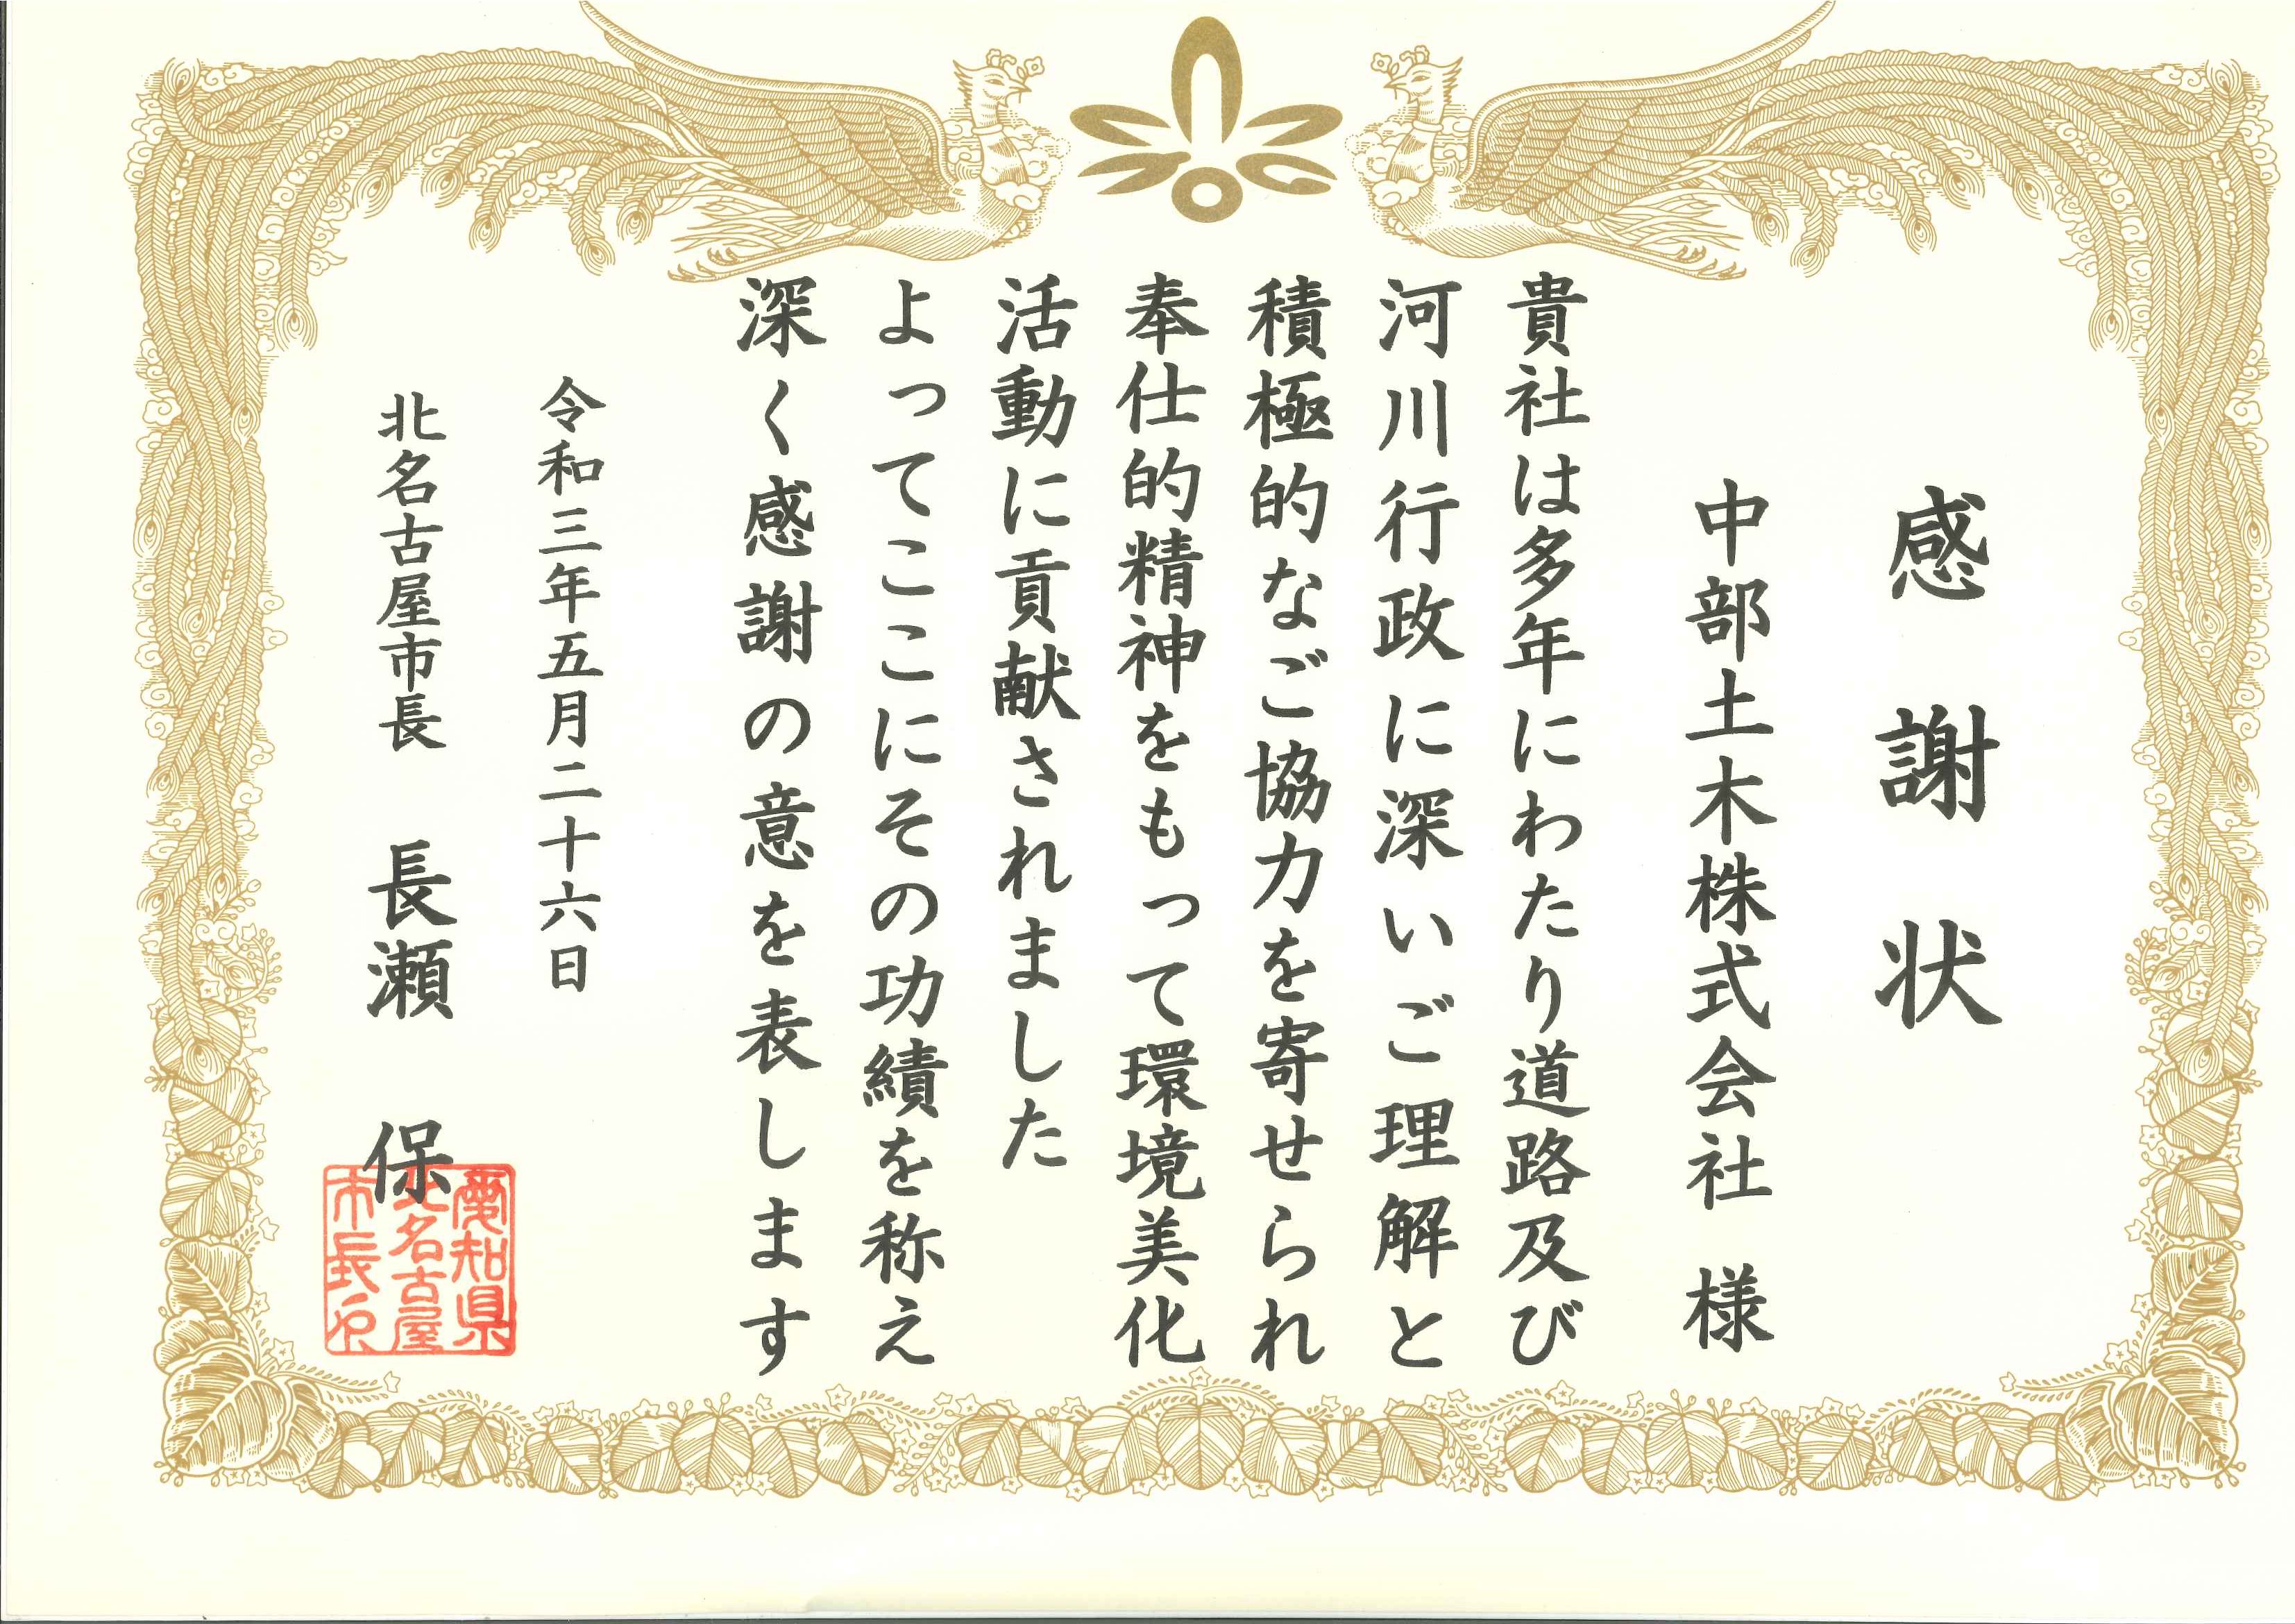 感謝状
中部土木株式会社 様
貴社は多年にわたり道路及び
河川行政に深いご理解と
積極的なご協力を寄せられ
奉仕的精神をもって環境美化
活動に貢献されました
よってここにその功績を称え
深く感謝の意を表します
令和三年五月二十六日
北名古屋市長 長瀬 保
愛知県
北名古屋
市長印